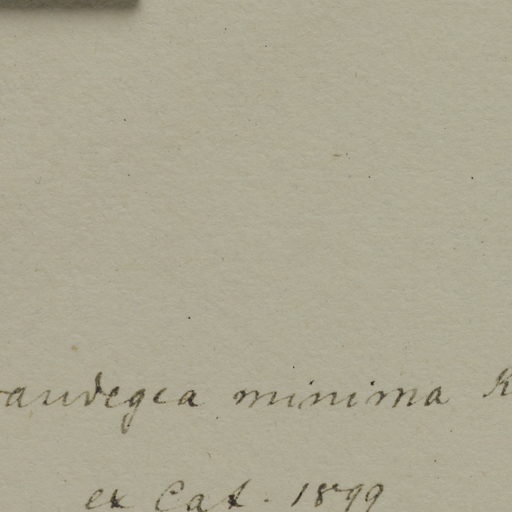 raudegea minima R
ex Cat. 1899